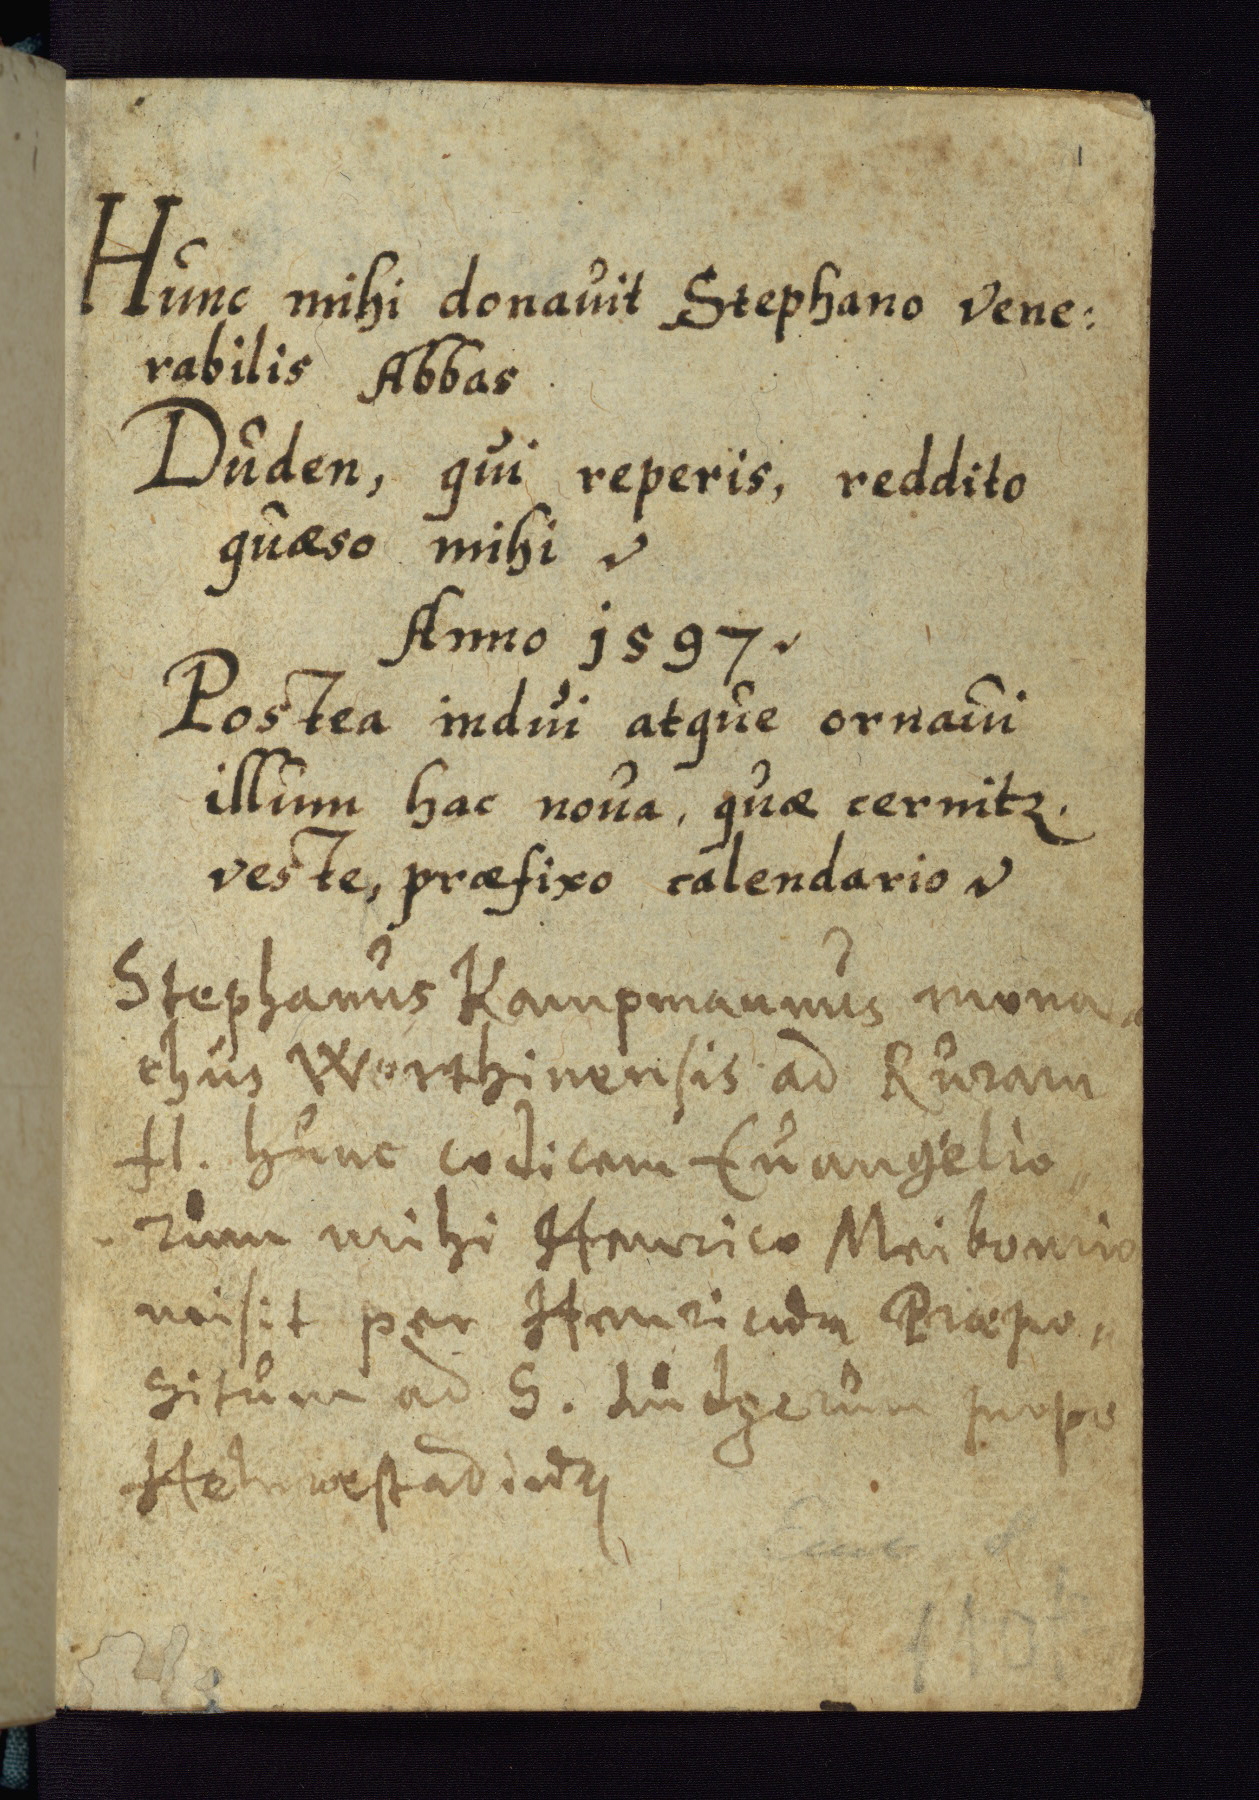 1
Hunc mihi donauit Stephano vene:
rabilis Abbas
Duden, qui reperis, reddito
quæso mihi
Anno 1597
Postea indui atque ornaui
illum hac noua, quæ cernitꝛ.
veste, præfixo calendario
Stephanus Kampmannus mona„
chus Werthinensis ad Ruram
fl. hunc codicem Euangelio„
rum mihi Henrico Meibomio
misit per Henricum Præpo„
situm ad S. Ludgerum prope
Helmestadium